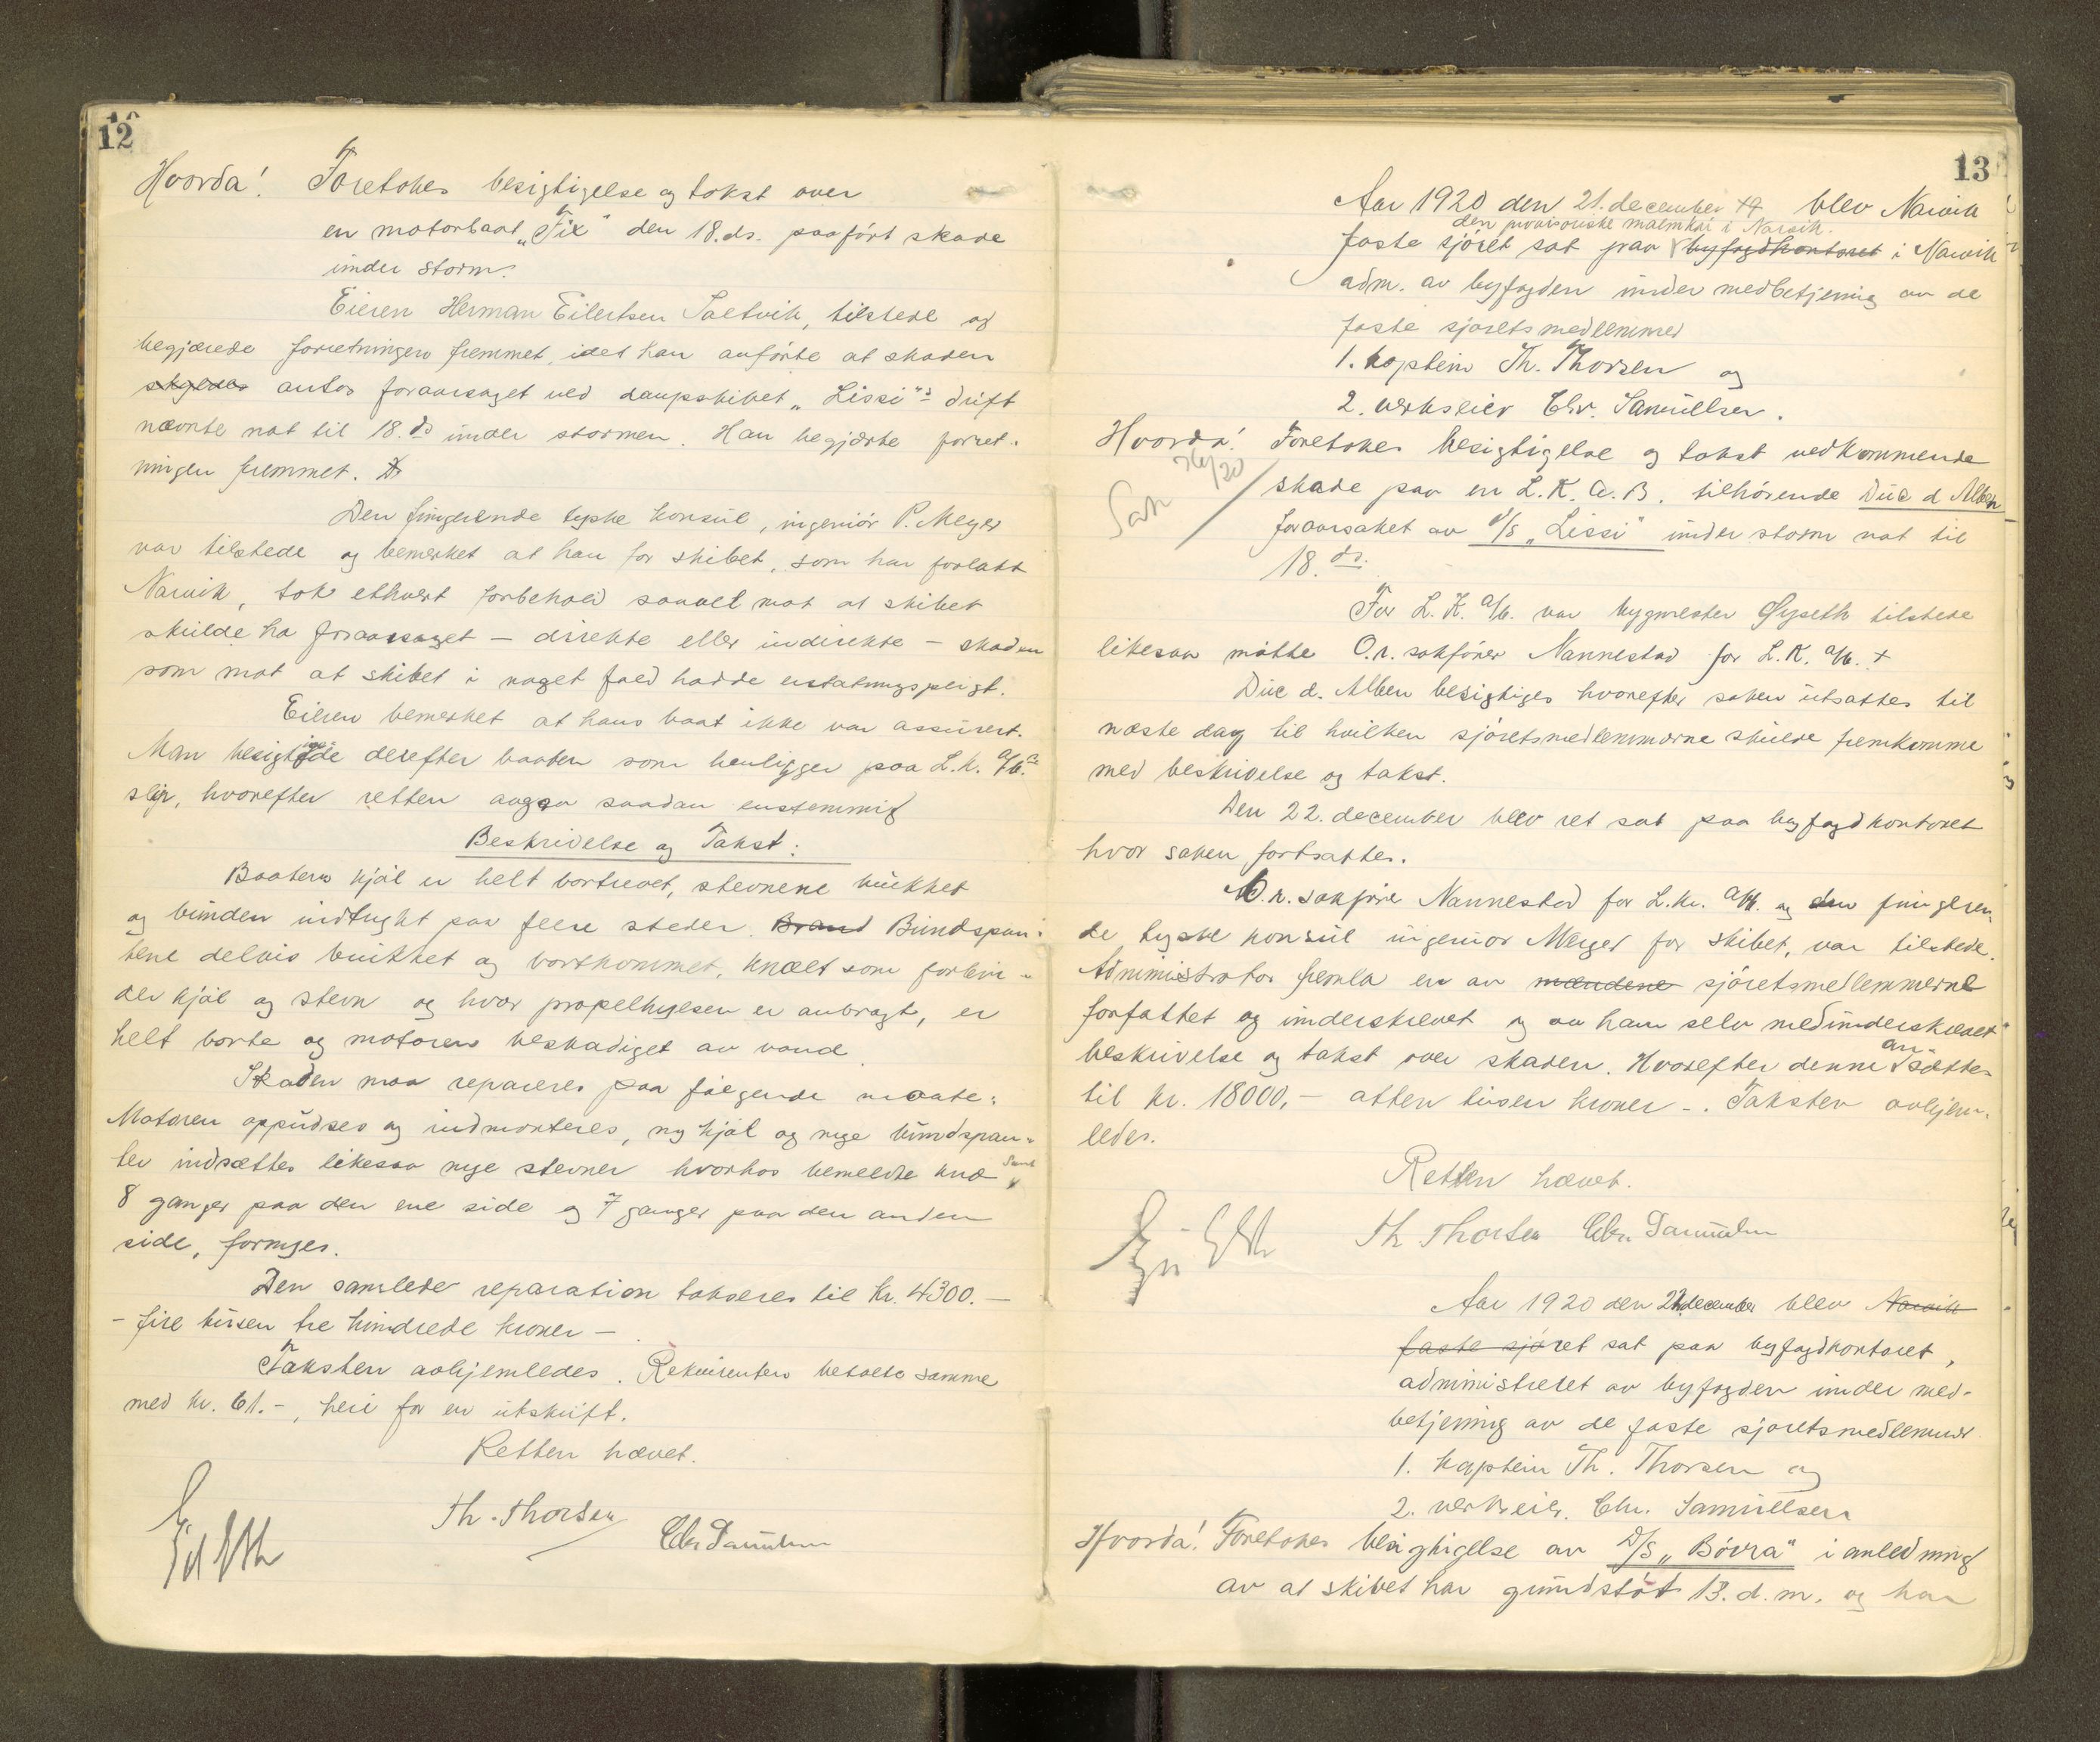 12
Hvorda! Foretokes besigtigelse og takst over
en motorbaat „Fix" den 18. ds. paaført skade
under storm.
Eieren Herman Eilertsen Saltvik, tilstede og
begjærede forretningen fremmet, idet han anførte at skaden
skyldes antas foraarsaget ved dampskibet „Lissi"s drift
nævnte nat til 18. ds under stormen. Han begjærte forret-
ningen fremmet.
Den fungerende tyske konsul, ingeniør P. Meyer
var tilstede og bemerket at han for skibet, som har forlatt
Narvik, tok ethvert forbehold saavel mot at skibet
skulde ha foraarsaget – direkte eller indirekte – skaden
som mot at skibet i noget fald hadde erstatningspligt.
Eieren bemerket at hans baat ikke var assurert.
Man besigtigede derefter baaten som henligger paa L.K. A/B.s
slip, hvorefter retten avgav saadan enstemmig
Beskrivelse og Takst:
Baatens kjøl er helt bortrevet, stevnene brukket
og bunden indtrykt paa flere steder. Brand Bundspan-
tene delvis brukket og bortkommet, knæet som forbin-
der kjøl og stevn og hvor propelhylsen er anbragt, er
helt borte og motoren beskadiget av vand
Skaden maa repareres paa følgende maate:
Motoren oppudses og indmonteres, ny kjøl og nye bundspan-
ter indsættes likesaa nye stevner hvorhos bemeldte knæ samt
8 ganger paa den ene side og 7 ganger paa den anden
side, fornyes.
Den samlede reparation takseres til Kr. 4300.–
– fire tusen tre hundrede kroner –
Taksten avhjemledes. Rekvirenten betalte samme
med kr. 61.–, heri for en utskrift.
Retten hævet.
Th. Thorsen
Chr Samuelsen
13
Aar 1920 den 21. december blev Narvik
den provisoriske malmkai i Narvik.
faste sjøret sat paa byfogdkontoret i Narvik
adm. av byfogden under medbetjening av de
faste sjøretsmedlemmer
1. kaptein Th. Thorsen og
2. verkseier Chr. Samuelsen.
Hvorda! Foretokes besigtigelse og takst vedkommende
Sak /20
skade paa en L.K.A.B. tilhørende Duc d Alben
foraarsaket av d/s „Lissi" under storm nat til
18. ds.
For L.K. A/B. var bygmester Øyseth tilstede
likesaa møtte O.r. sakfører Nannestad for L.K. A/B. +
Duc d. Alben besigtiges hvorefter saken utsattes til
næste dag til hvilken sjøretsmedlemmerne skulde fremkomme
med beskrivelse og takst.
Den 22. december blev ret sat paa byfogdkontoret
hvor saken fortsattes.
O.r. sakfører Nannestad for L.K. A/B. og den fungeren-
de tyske konsul ingeniør Meyer for skibet, var tilstede.
Administrator fremla en av mændene sjøretsmedlemmerne
forfattet og underskrevet og av ham selv medunderskrevet
beskrivelse og takst over skaden. Hvorefter denne ansættes
til kr. 18000,– atten tusen kroner –. Taksten avhjem-
ledes.
Retten hævet.
Th Thorsen Chr. Samuelsen
Aar 1920 den 21. december blev Narvik
faste sjøret sat paa byfogdkontoret,
administreret av byfogden under med-
betjening av de faste sjøretsmedlemmer
1. kaptein Th. Thorsen og
2. verkseier. Chr. Samuelsen
Hvorda! Foretokes besigtigelse av D/S „Bövra" i anledning
av at skibet har grundstøt 13. d.m. og har